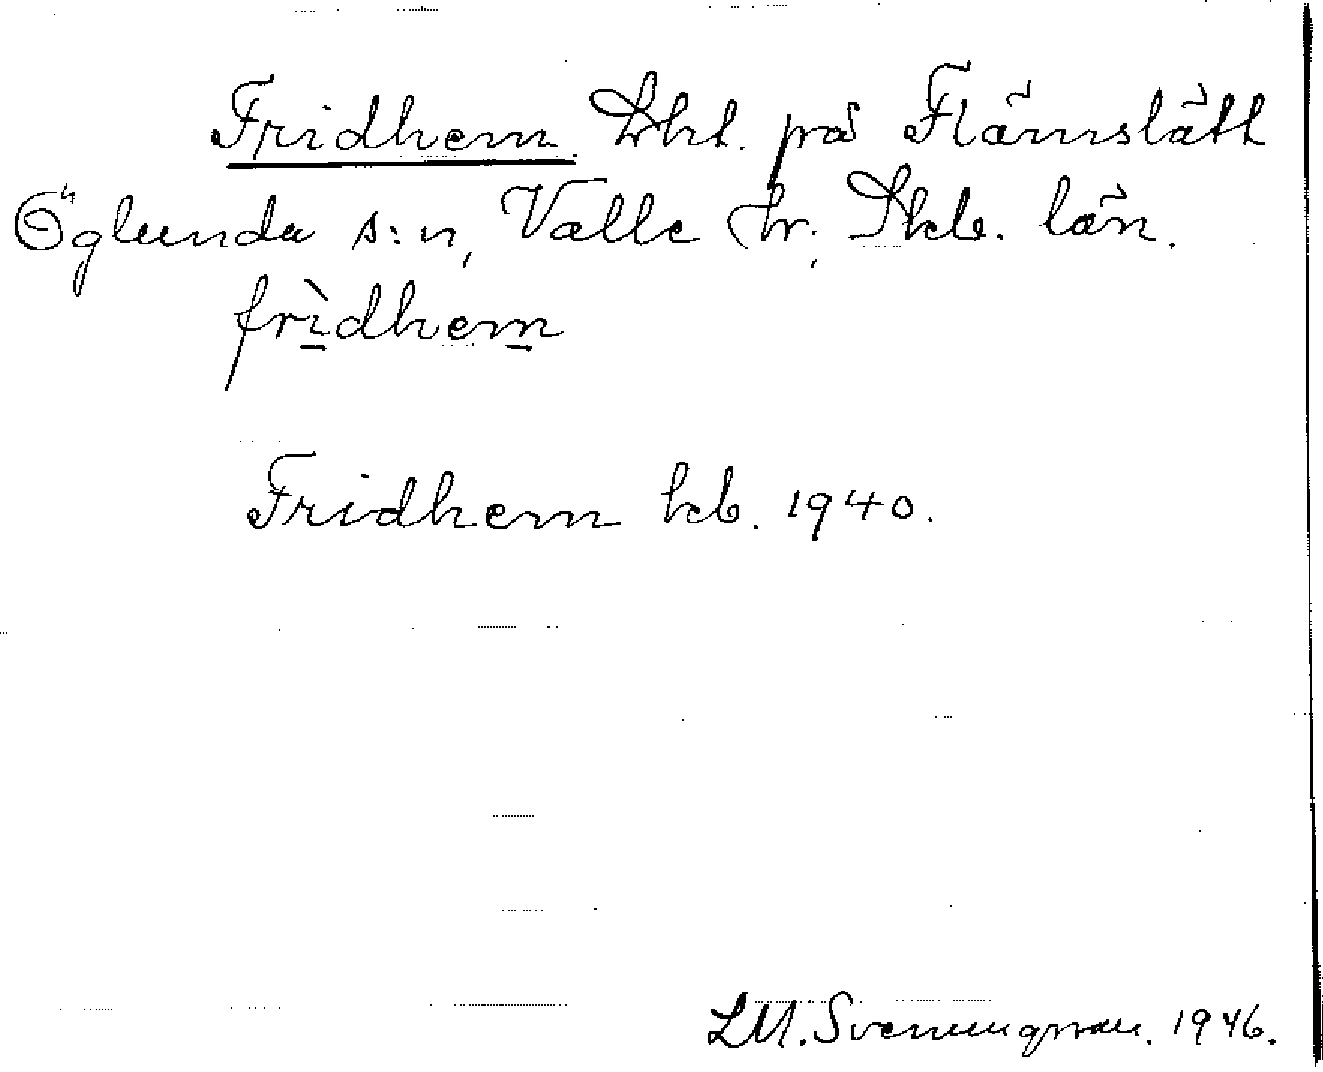 Fridhem. Lht. på Flämslätt
Öglunda s:n, Valle hr, Skb. län.
frìdhem
Fridhem kb. 1940.
L.M. Svenungsson. 1946.